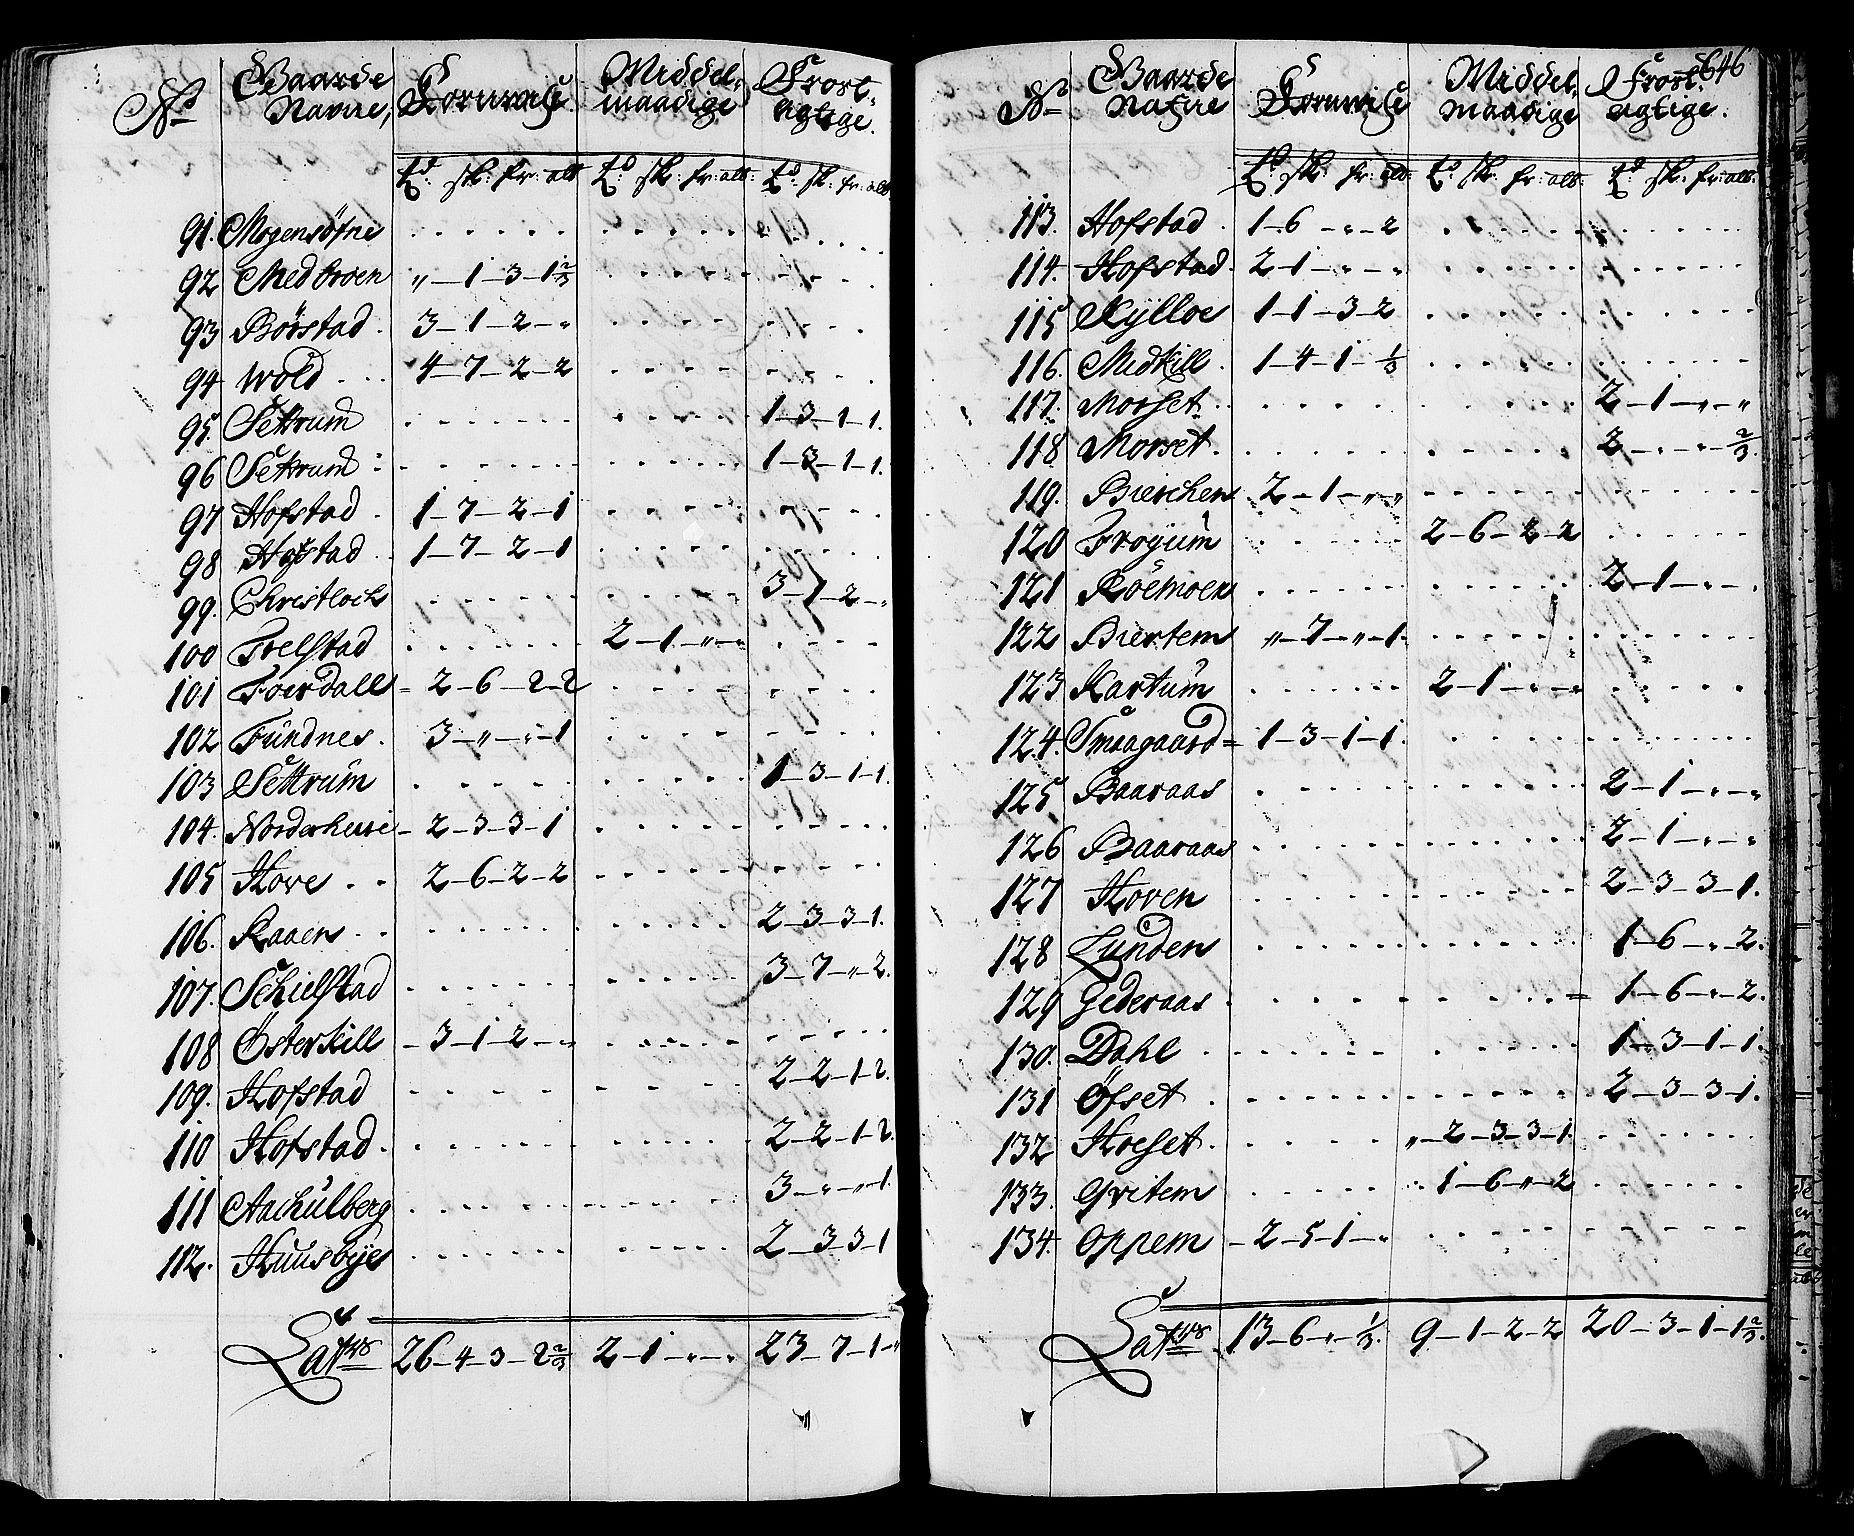 No Gaarde Navne, Kornvisse Middel-maadige Frost-agtige.
td: sk: fr: alb td: sk: fr: alb: td: sk: fr: alb
91. Mogensöfne
92 Medbroen „ _ 1 _ 3 _ 1 2/3
93 Börstad. 3 _ 1 _ 2 _ „
94 Wold 4 _ 7 _ 2 _ 2
95. Settrum 1 _ 3 _ 1 _ 1.
96 Settrum 1 _ 3 _ 1 _ 1.
97 Hofstad 1 _ 7 _ 2 _ 1
98 Hofstad 1 _ 7 _ 2 _ 1
99. Christloch 3 _ 1 _ 2 _ „
100 Trelstad 2 _ 1 _ „ _ „
101 Foerdall 2 _ 6 _ 2 _ 2
102 Fundnes. 3 _ „ _ „ _ 1
103 Settrum 1 _ 3 _ 1 _ 1.
104. Norderhuse 2 _ 3 _ 3 _ 1
105 Hove 2 _ 6 _ 2 _ 2
106. Raaen 2 _ 3 _ 3 _ 1.
107. Schielstad 3 _ 7 _ „ _ 2.
108 Österkill 3 _ 1 _ 2 _ „
109. Hofstad 2 _ 2 _ 1 _ 2.
110 Hofstad. 2 _ 2 _ 1 _ 2.
111 Aachulberg 3 _ „ _ „ _ 1
112. Huusbÿe 2 _ 3 _ 3 _ 1
Latus 26 _ 4 _ 3 _ 2 2/3 2 _ 1 _ „ _ „ 23 _ 7 _ 1 _ „
646
No Gaarde Nafne Kornvisse Middel-maadige Frost-agtige.
td: sk: fr: alb: td: sk: fr: alb: td: sk: fr: alb:
113. Hofstad. 1 _ 6 _ „ _ 2
114. Hofstad. 2 _ 1 _ „ _ „
115 Kÿlloe 1 _ 1 _ 3 _ 2
116. Midkill 1 _ 4 _ 1 _ 1/3
117. Morset 2 _ 1 _ „ _ „
118 Morset. 2 _ „ _ „ _ 2/3
119. Bierchen 2 _ 1 _ „ _ „
120 Frogum 2 _ 6 _ 2 _ 2
121 Röemoen 2 _ 1 _ „ _ „
122 Biertem „ _ 7 _ „ _ 1.
123 Kartum 2 _ 1 _ „ _ „
124. Smaagaard 1 _ 3 _ 1 _ 1.
125 Baaraas 2 _ 1 _ „ _ „
126 Baaraas 2 _ 1 _ „ _ „
127 Hoven 2 _ 3 _ 3 _ 1.
128 Lunden 1 _ 6 _ „ _ 2.
129 Gederaas 1 _ 6 _ „ _ 2.
130. Dahl 1 _ 3 _ 1 _ 1.
131 Öfset 2 _ 3 _ 3 _ 1.
132 Hoeset. „ _ 2 _ 3 _ 3 _ 1.
133. Qvitem 1 _ 6 _ „ _ 2
134. Oppem 2 _ 5 _ 1 _ „
Latus 13 _ 6 _ „ _ 1/3. 9 _ 1 _ 2 _ 2 20 _ 3 _ 1 _ 1 2/3.